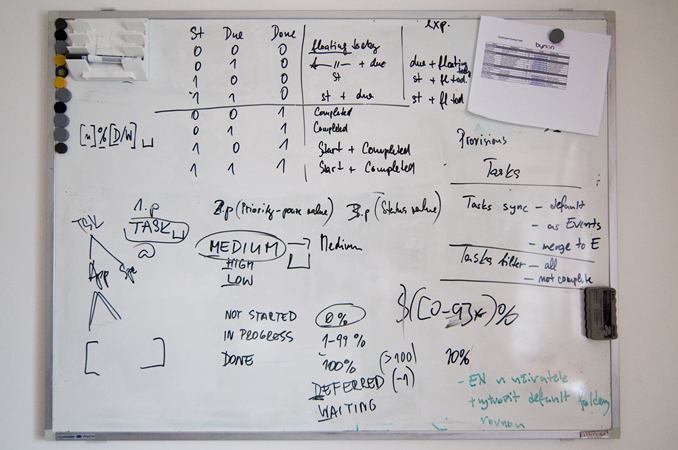 St Due Done exp.
0 0 0 floating today
0 1 0 —"— + due due + floating
1 0 0 st st + fl tod.
1 1 0 st + due st + fl tod
0 0 1 Completed
0 1 1 Completed
1 0 1 Start + Completed
1 1 1 Start + Completed
[n]%[D/W]
bynon
Provisions
Tasks
Tasks sync - default
- as Events
- merge to E
Tasks filter - all
- not complete
1.p 2.p (Priority-parse value) 3.p (Status value)
TASK
@
App
MEDIUM Medium
HIGH
LOW
NOT STARTED 0%
IN PROGRESS 1-99%
DONE 100% (>100) 10%
DEFERRED (-1)
WAITING
([0-9]*)%
- EN u uživatele
+ vytvořit default folder
rovnou